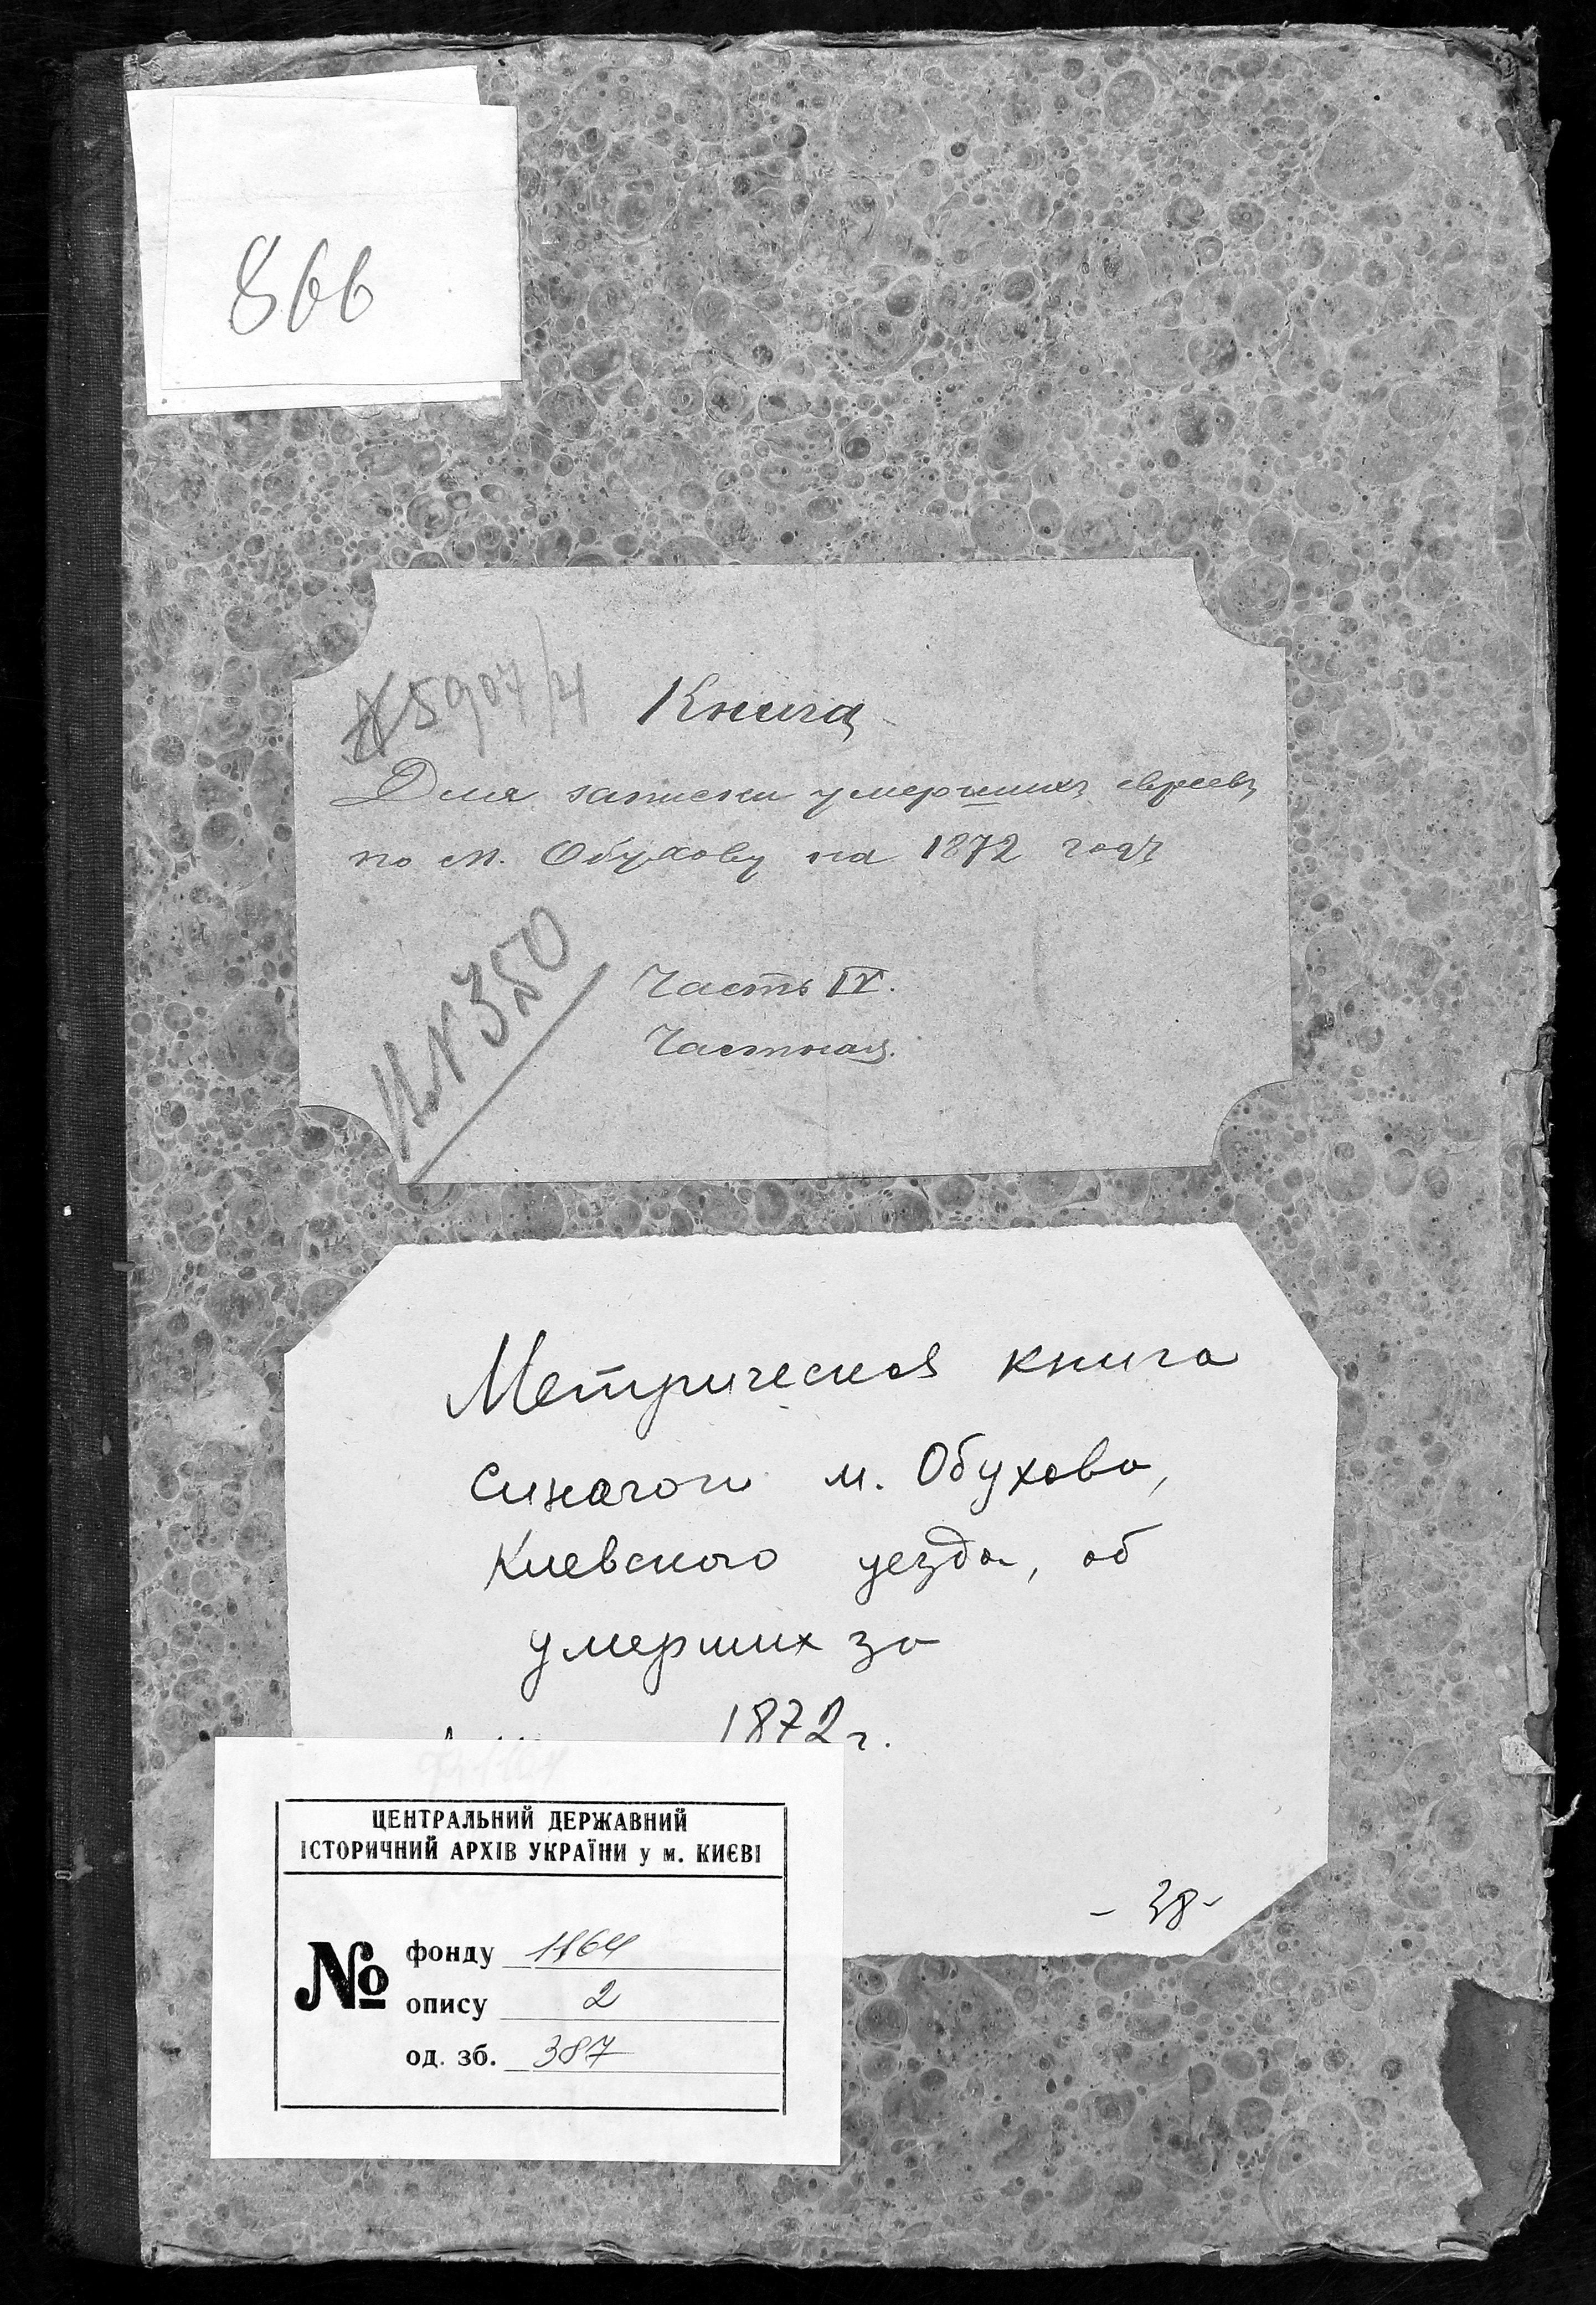 866
№ 5907/4
Книга
Для записки умершихъ евреевъ
по м. Обухову на 1872 годъ
Часть IV.
Частная.
№ 350
Метрическая книга
синагоги м. Обухова,
Киевского уезда, об
умерших за
1872 г.
- 38 -
ЦЕНТРАЛЬНИЙ ДЕРЖАВНИЙ
ІСТОРИЧНИЙ АРХІВ УКРАЇНИ у м. КИЄВІ
№
фонду 1164
опису 2
од. зб. 387